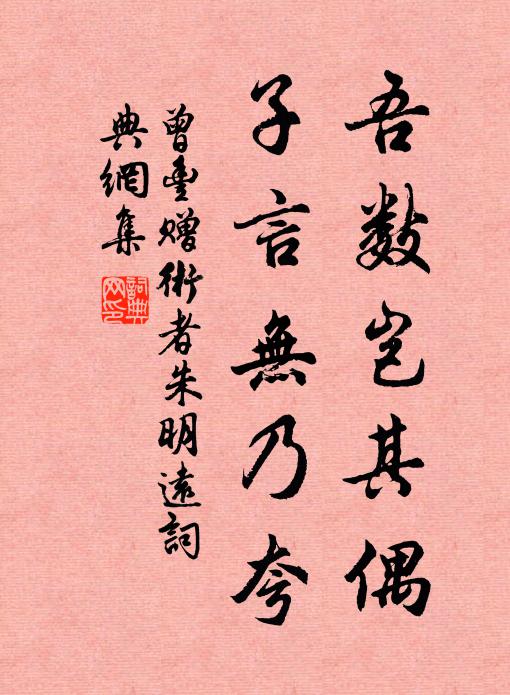 吾數豈其偶
子言無乃夸
曾豐贈術者朱明遠詞
典網集
詞典網印